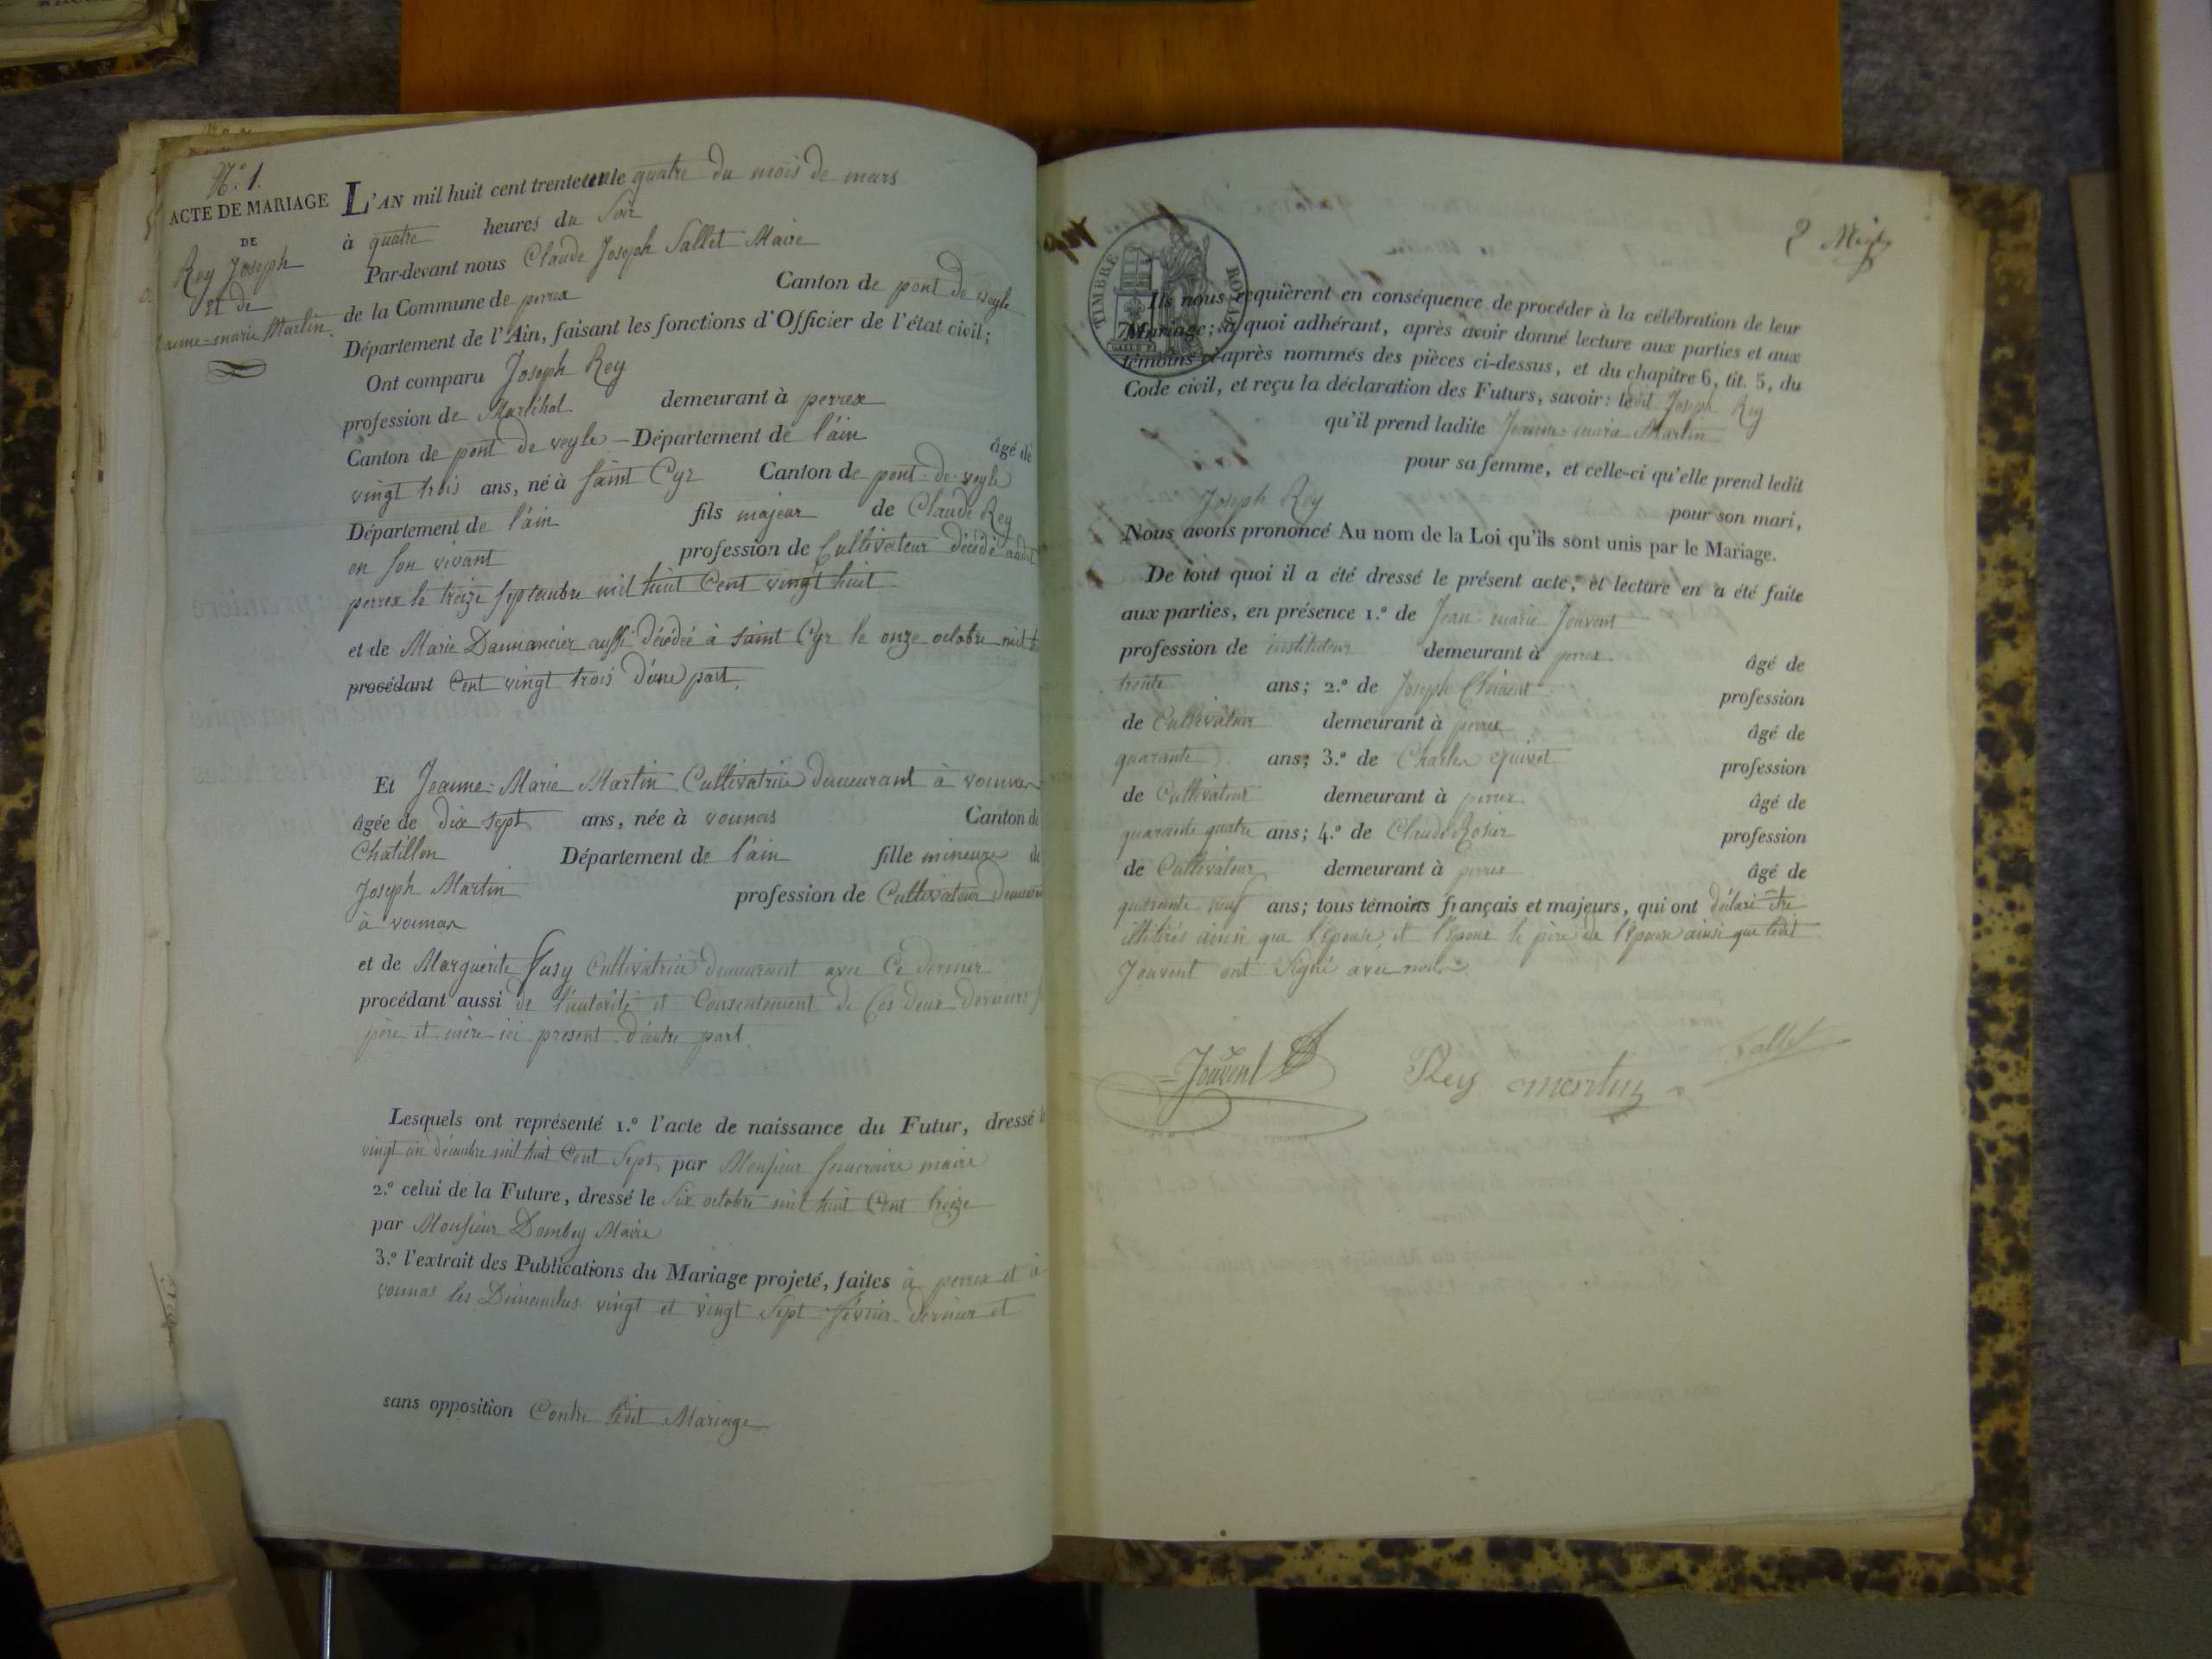 N.º 1.
ACTE DE MARIAGE
DE
Rey Joseph
Et de
Jeanne-marie Martin
L'AN mil huit cent trente un le quatre du mois de mars
à quatre heures du Soir
Par-devant nous Claude Joseph Sallet Maire
de la Commune de perrex Canton de pont de veyle
Département de l'Ain, faisant les fonctions d'Officier de l'état civil;
Ont comparu Joseph Rey
profession de Maréchal demeurant à perrex
Canton de pont de veyle Département de l'ain âgé de
vingt trois ans, né à Saint Cyr Canton de pont-de-veyle
Département de l'ain fils majeur de Claude Rey
en son vivant profession de Cultivateur décédé audit
perrex le treize septembre mil huit Cent vingt huit
et de Marie Dannancier aussi décédée à saint Cyr le onze octobre mil
procédant Cent vingt trois d'une part.
Et Jeanne-Marie Martin Cultivatrice demeurant à vounas
âgée de dix sept ans, née à vounas Canton de
Chatillon Département de l'ain fille mineure de
Joseph Martin profession de Cultivateur
à vounas
et de Marguerite Cultivatrice demeurant avec Ce dernier
procédant aussi de l'autorité et Consentement de Ces deux derniers
père et mère ici present d'autre part.
Lesquels ont représenté 1.º l'acte de naissance du Futur, dressé le
vingt un décembre mil huit Cent Sept par Monsieur maire
2.º celui de la Future, dressé le Six octobre mil huit Cent treize
par Monsieur Dombey Maire
3.º l'extrait des Publications du Mariage projeté, faites à perrex et à
vounas les Dimanches vingt et vingt Sept février dernier et
sans opposition Contre ledit Mariage
TIMBRE ROYAL
Ils nous requièrent en conséquence de procéder à la célébration de leur
Mariage; à quoi adhérant, après avoir donné lecture aux parties et aux
témoins ci-après nommés des pièces ci-dessus, et du chapitre 6, tit. 5, du
Code civil, et reçu la déclaration des Futurs, savoir: ledit Joseph Rey
qu'il prend ladite Jeanne-marie Martin
pour sa femme, et celle-ci qu'elle prend ledit
Joseph Rey pour son mari,
Nous avons prononcé Au nom de la Loi qu'ils sont unis par le Mariage.
De tout quoi il a été dressé le présent acte, et lecture en a été faite
aux parties, en présence 1.º de Jean-marie Jouvent
profession de instituteur demeurant à perrex âgé de
trente ans; 2.º de Joseph profession
de Cultivateur demeurant à perrex âgé de
quarante ans; 3.º de Charles profession
de Cultivateur demeurant à perrex âgé de
quarante quatre ans; 4.º de Claude Rosier profession
de Cultivateur demeurant à perrex âgé de
quarante neuf ans; tous témoins français et majeurs, qui ont déclaré être
illitérés ainsi que l'épouse, et l'époux le père de l'épouse ainsi que ledit
Jouvent ont Signé avec nous
Jouvent Rey martin Sallet